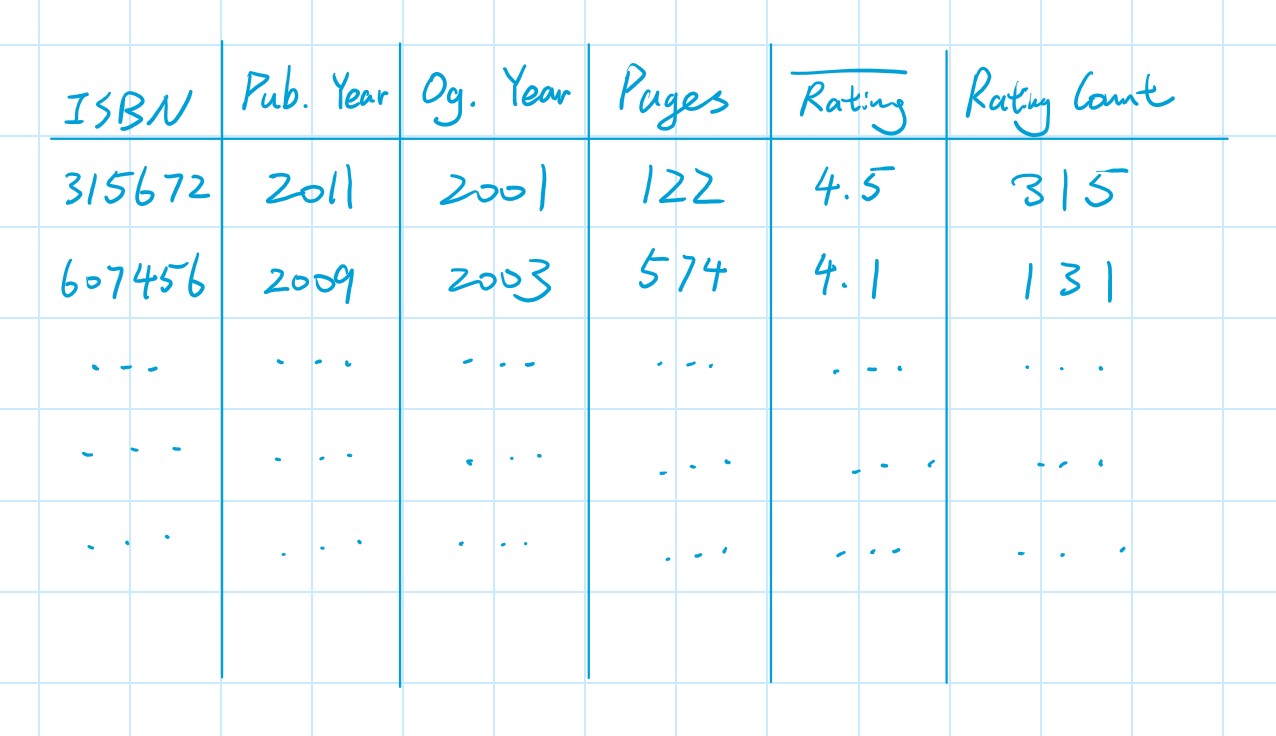 ISBN Pub. Year Og. Year Pages Rating Rating Count
315672 2011 2001 122 4.5 315
607456 2009 2003 574 4.1 131
... ... ... ... ... ...
... ... ... ... ... ...
... ... ... ... ... ...